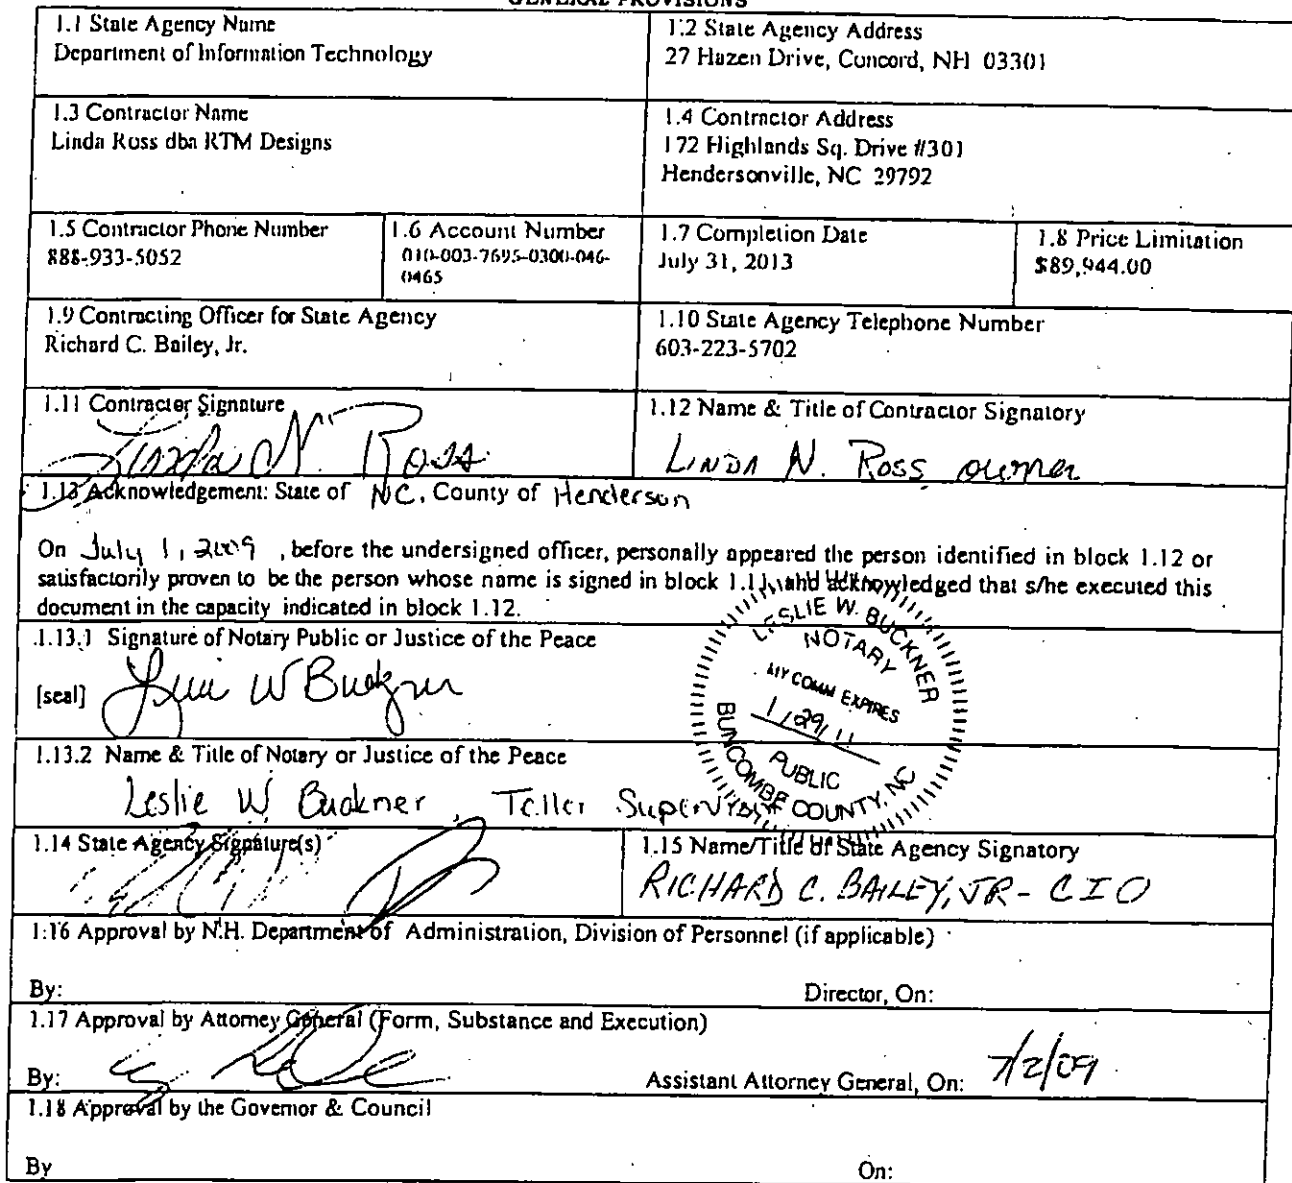 GENERAL PROVISIONS
1.1 State Agency Name
Department of Information Technology
1.2 State Agency Address
27 Hazen Drive, Concord, NH 03301
1.3 Contractor Name
Linda Ross dba RTM Designs
1.4 Contractor Address
172 Highlands Sq. Drive #301
Hendersonville, NC 29792
1.5 Contractor Phone Number
888-933-5052
1.6 Account Number
010-003-7695-0300-046-
0465
1.7 Completion Date
July 31, 2013
1.8 Price Limitation
$89,944.00
1.9 Contracting Officer for State Agency
Richard C. Bailey, Jr.
1.10 State Agency Telephone Number
603-223-5702
1.11 Contractor Signature
Linda N. Ross
1.12 Name & Title of Contractor Signatory
LINDA N. Ross owner
1.13 Acknowledgement: State of NC, County of Henderson
On July 1, 2009 , before the undersigned officer, personally appeared the person identified in block 1.12 or
satisfactorily proven to be the person whose name is signed in block 1.11, and acknowledged that s/he executed this
document in the capacity indicated in block 1.12.
1.13.1 Signature of Notary Public or Justice of the Peace
[seal] Leslie W Buckner
LESLIE W. BUCKNER
NOTARY
MY COMM EXPIRES
1/29/11
PUBLIC
BUNCOMBE COUNTY, NC
1.13.2 Name & Title of Notary or Justice of the Peace
Leslie W Buckner, Teller Supervisor
1.14 State Agency Signature(s)
1.15 Name/Title of State Agency Signatory
RICHARD C. BAILEY, JR - CIO
1.16 Approval by N.H. Department of Administration, Division of Personnel (if applicable)
By: Director, On:
1.17 Approval by Attorney General (Form, Substance and Execution)
By: Assistant Attorney General, On: 7/2/09
1.18 Approval by the Governor & Council
By On: